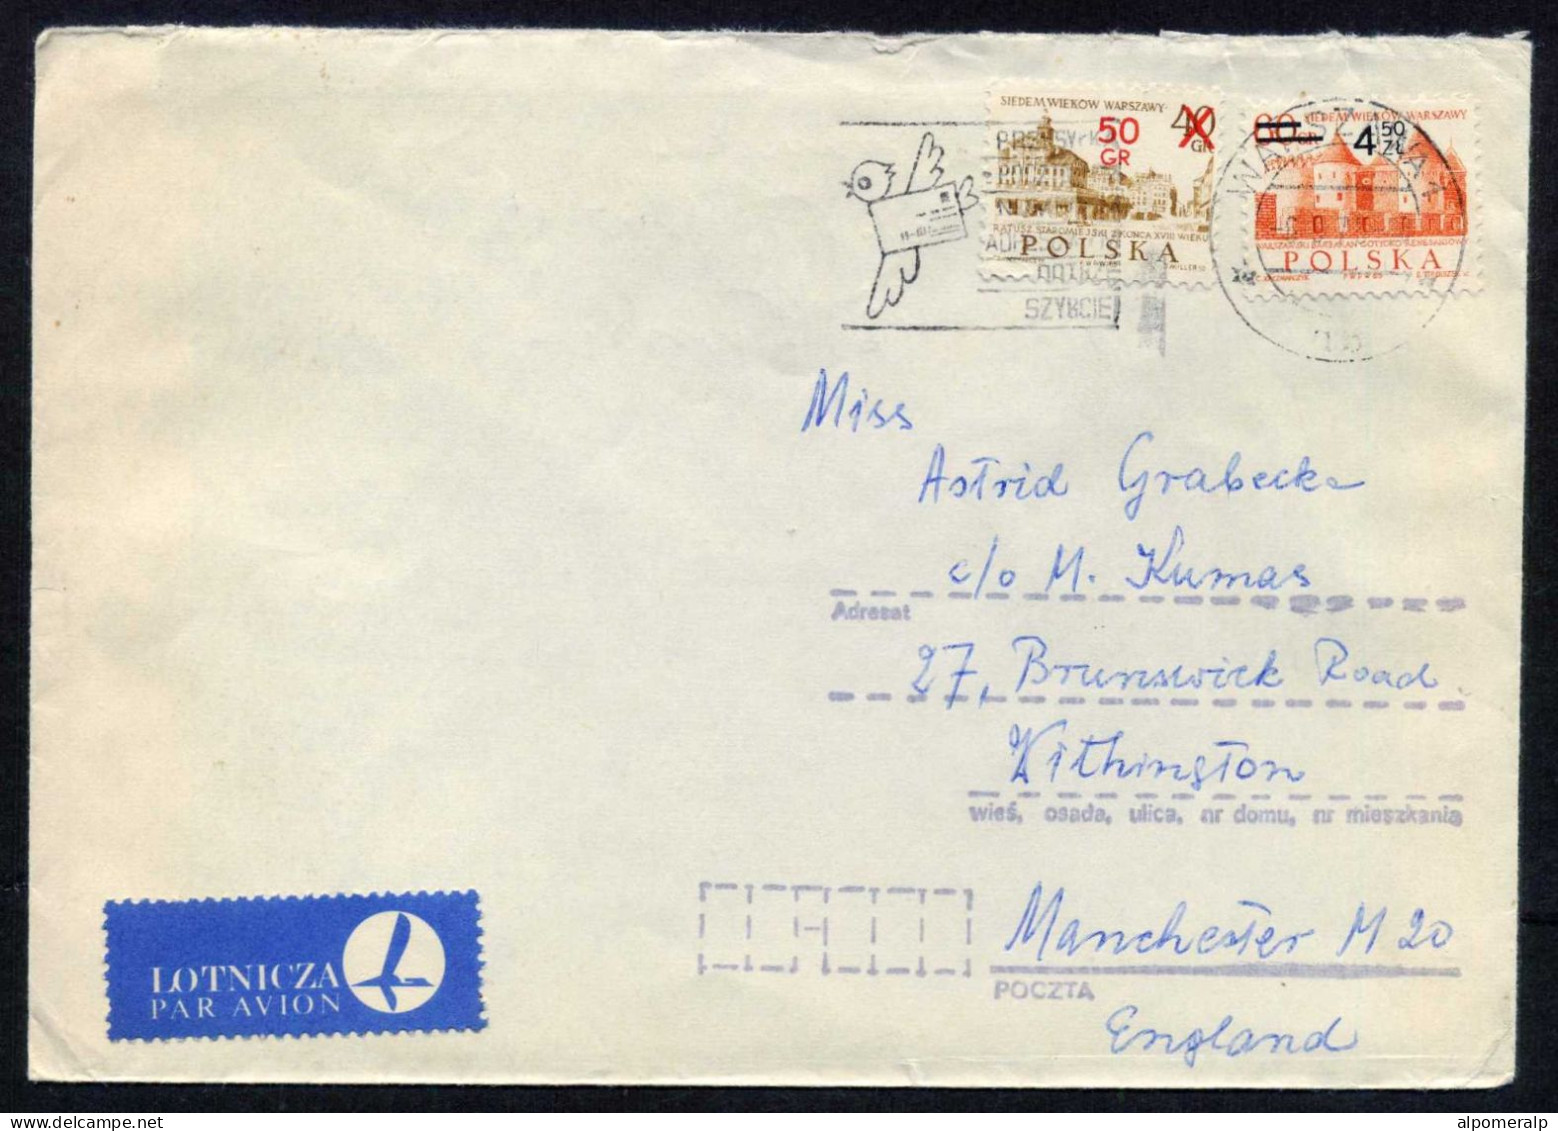 SIEDEM WIEKÓW WARSZAWY
50
GR
40
GR
RATUSZ STAROMIEJSKI Z KOŃCA XVIII WIEKU
POLSKA
SIEDEM WIEKÓW WARSZAWY
60 GR
4 50
ZŁ
POLSKA
WARSZAWA 1
DOTRZE
SZYBCIEJ
Miss
Astrid Grabecka
c/o M. Kumas
Adresat
27, Brunswick Road
Withington
wieś, osada, ulica, nr domu, nr mieszkania
Manchester M 20
POCZTA
England
LOTNICZA
PAR AVION
alpomeralp